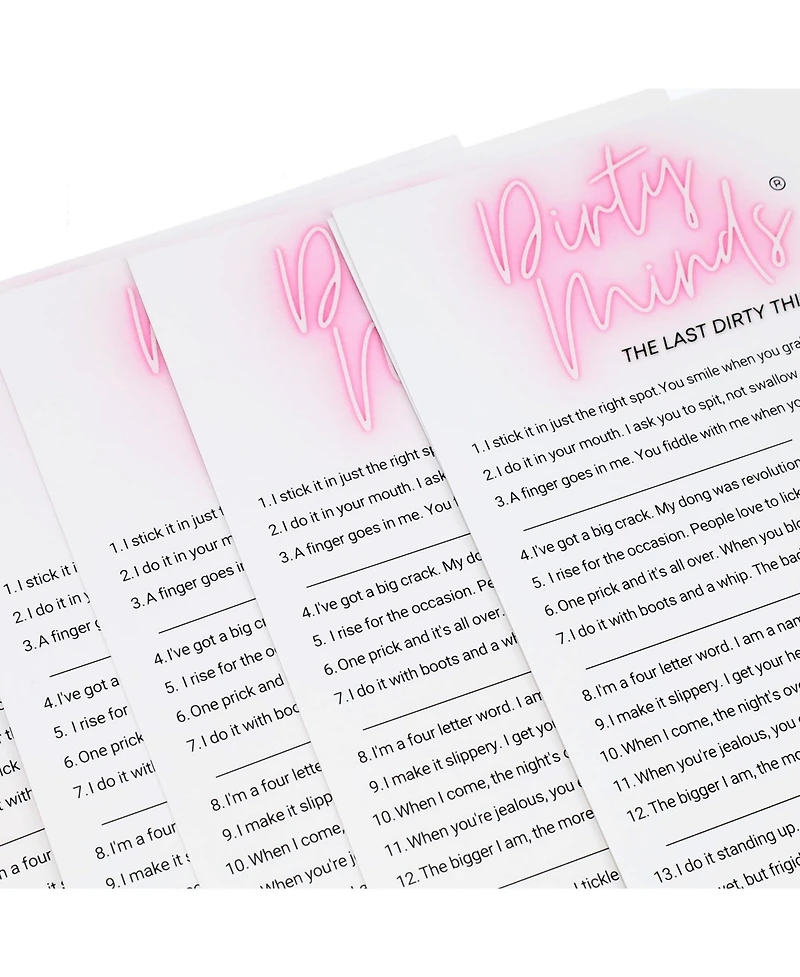 Dirty
Minds®
THE LAST DIRTY THI
1.I stick it in just the right spot.You smile when you gra
2.I do it in your mouth. I ask you to spit, not swallow
3.A finger goes in me. You fiddle with me when yo
4.I've got a big crack. My dong was revolution
5. I rise for the occasion. People love to lick
6.One prick and it's all over. When you blo
7.I do it with boots and a whip. The bac
8.I'm a four letter word. I am a nam
9.I make it slippery. I get your he
10.When I come, the night's ove
11.When you're jealous, you
12.The bigger I am, the mo
13.I do it standing up.
vet, but frigid
D
M
1.I stick it in just the right sp
2.I do it in your mouth. I ask
3.A finger goes in me. You f
4.I've got a big crack. My do
5. I rise for the occasion. Pe
6.One prick and it's all over.
7.I do it with boots and a wh
8.I'm a four letter word. I am
9.I make it slippery. I get yo
10.When I come, the night's o
11.When you're jealous, you
12.The bigger I am, the more
I tickle
1.I stick it in just t
2.I do it in your m
3.A finger goes in
4.I've got a big cr
5. I rise for the o
6.One prick and
7.I do it with boo
8.I'm a four lette
9.I make it slipp
10.When I come,
When you're j
1.I stick it i
2.I do it in y
3.A finger g
4.I've got a
5. I rise for
6.One prick
7.I do it wit
8.I'm a four
9.I make it s
ick
with
n a four